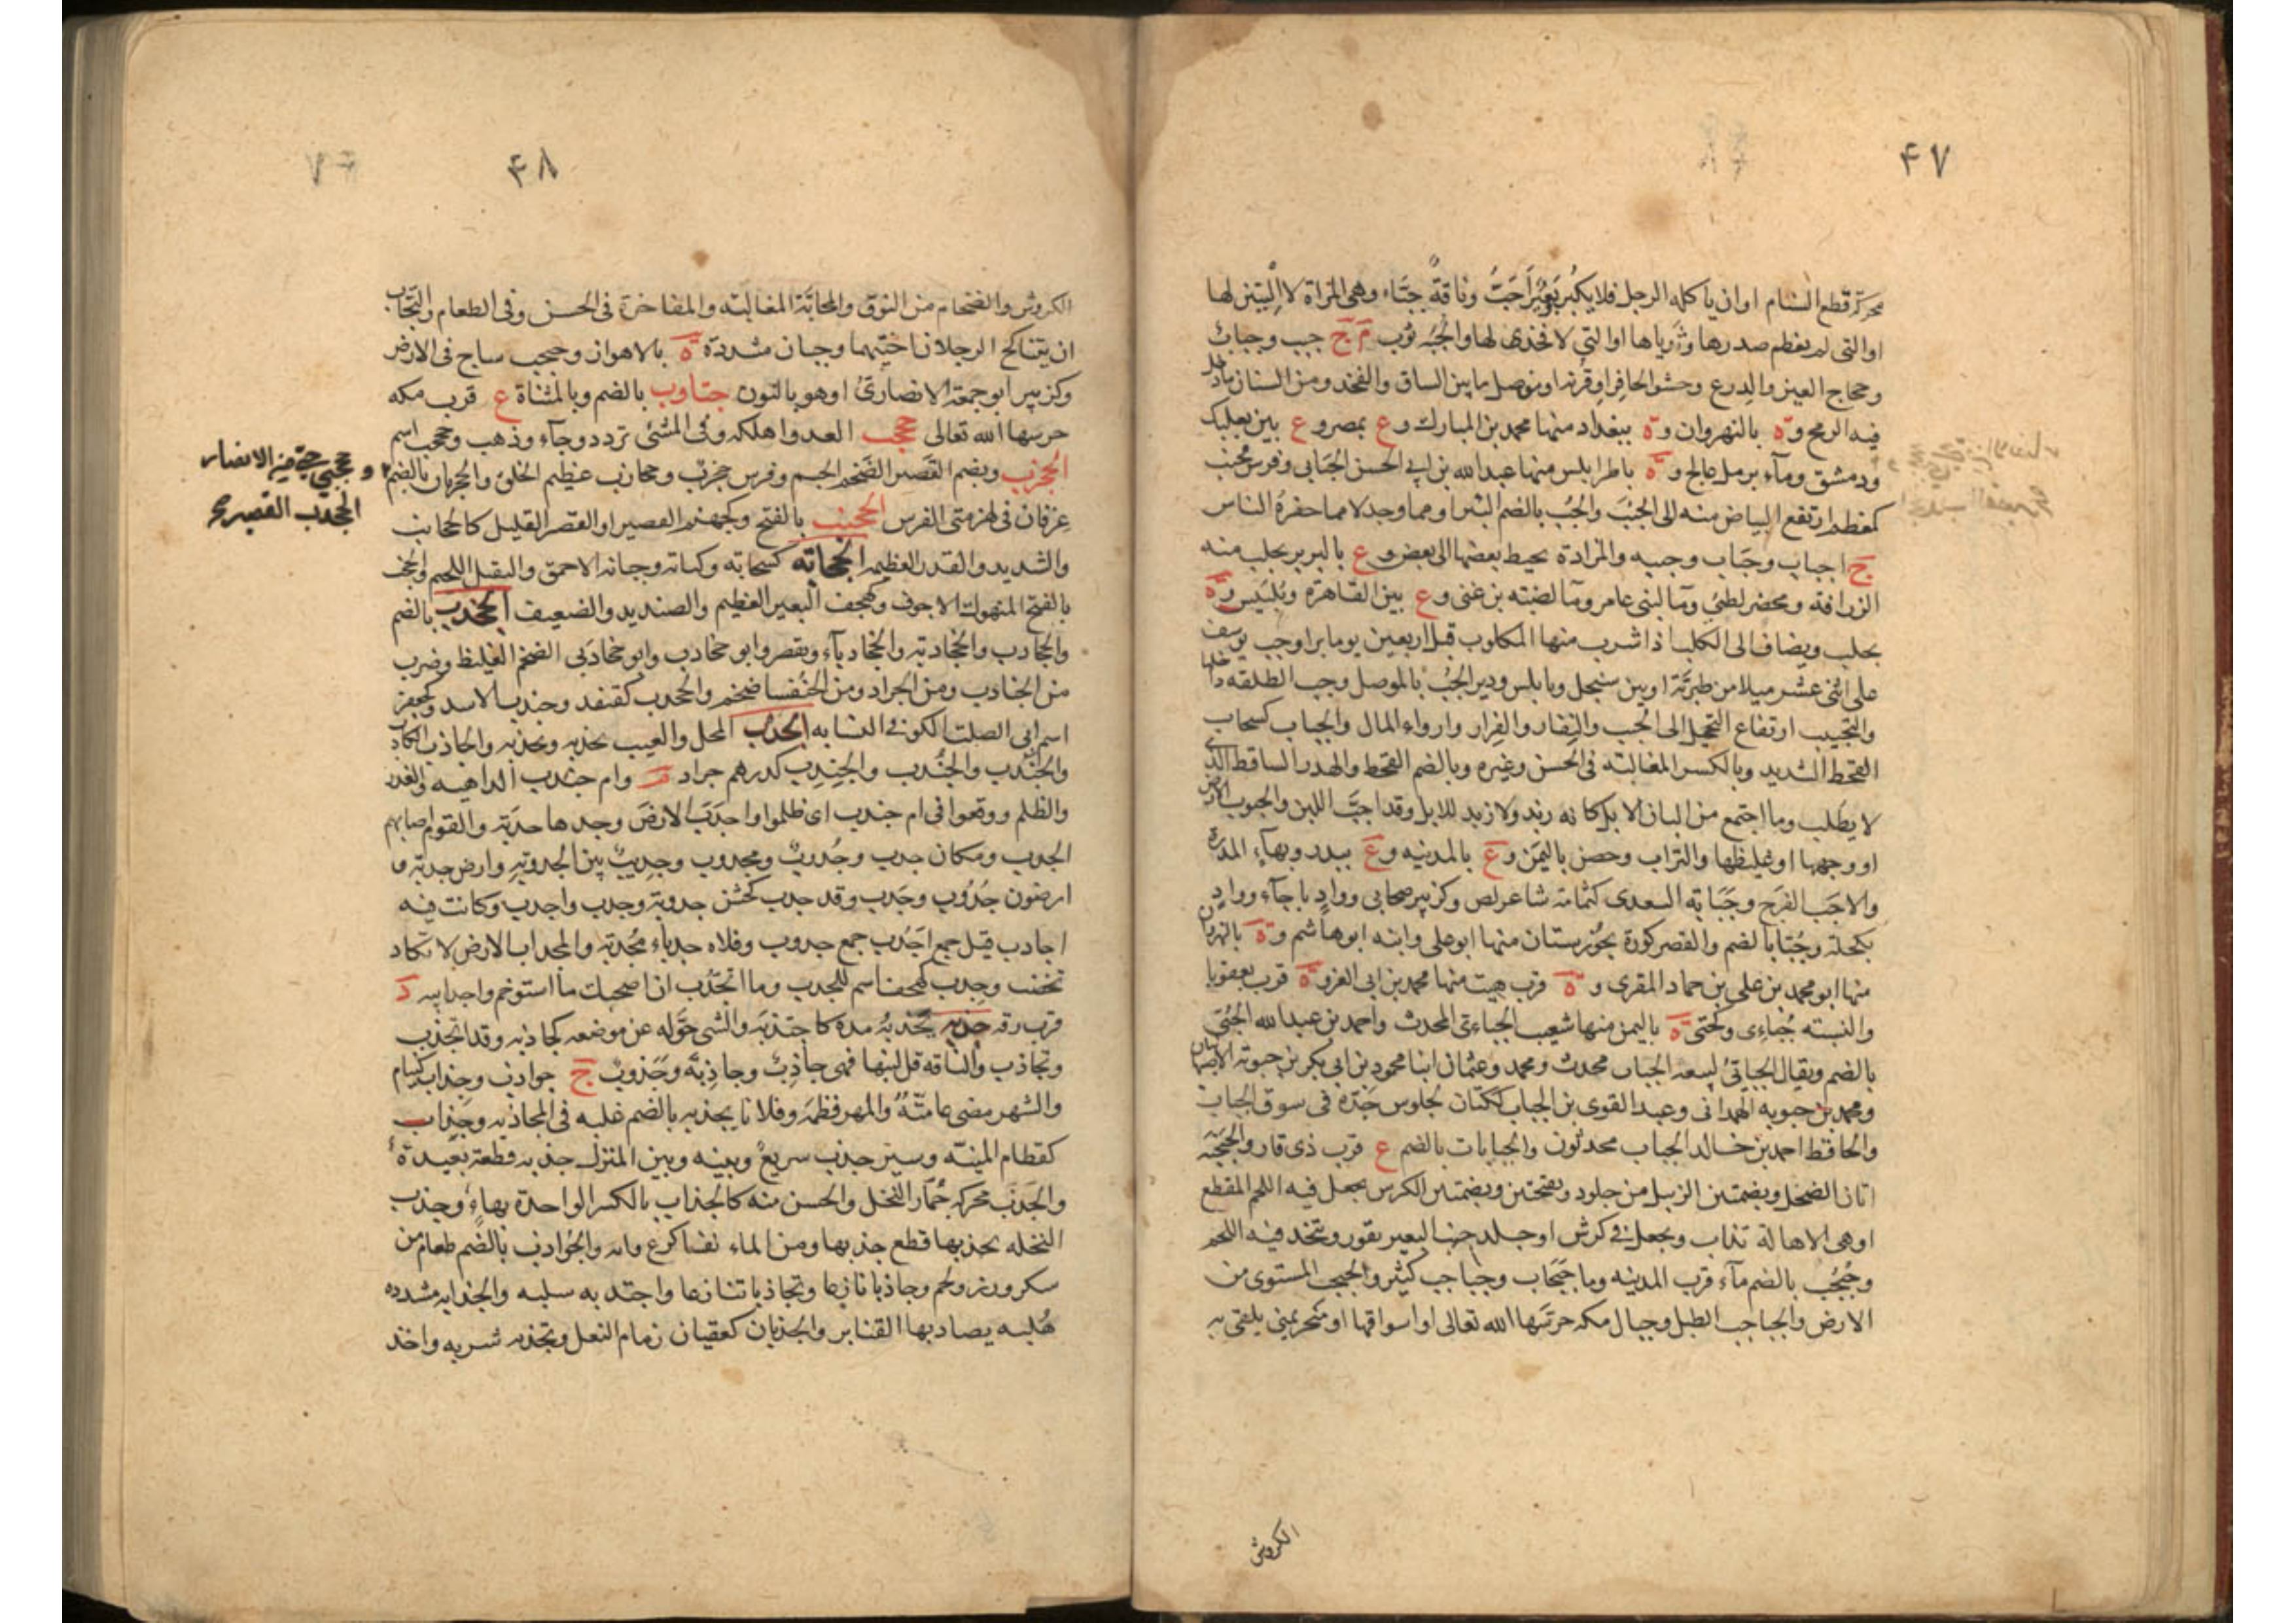 ٤٧
محركة قطع السنام او ان ياكله الرجل فلا يكبر بعير اجب وناقة جباء وهى المراة لا اليتين لها
او التى لم يعظم صدرها وثدياها او التى لا فخذى لها والجبه ثوب م ج جبب وجباب
وحجاج العين والدرع وحشو الحافر او قرنه او موصل ما بين الساق والفخذ ومن السنان ما دخل
فيه الرمح وة بالنهروان وة ببغداد منها محمد بن المبارك وع بمصر وع بين بعلبك
ودمشق وماء برمل عالج وة باطرابلس منها عبد الله بن ابى الحسن الجبابى وفرس مجبب
كمعظم ارتفع البياض منه الى الجبب والجب بالضم البئر او مما وجد لا مما حفرة الناس
ج اجباب وجباب وجببه والمزادة يخيط بعضها الى بعض وع بالبربر يجلب منه
الزرافة ومحضر لطيئ وماء لبنى عامر وماء لضبه بن غنى وع بين القاهرة وبلبيس وة
بحلب ويضاف الى الكلب اذا شرب منها المكلوب قبل اربعين يوما برا وجب يوسف
على اثنى عشر ميلا من طبرية او بين سنجل ونابلس ودير الجب بالموصل وجب الطلعه داخلها
والتجبيب ارتفاع التحجيل الى الجبب والنفار والفرار وارواء المال والجباب كسحاب
القحط الشديد وبالكسر المغالبة فى الحسن وغيره وبالضم القحط والهدر الساقط الذى
لا يطلب وما اجتمع من البان الابل كانه زبد ولا زبد للابل وقد اجب اللبن والجبوب الارض
او وجهها او غليظها والتراب وحصن باليمن وع بالمدينه وع ببدر وبهاء المدرة
والاجب الفرج وجبابة السعدى كثمامة شاعر لص وكزبير صحابى وواد باجاء وواد
بكحلة وجبى بالضم والقصر كورة بخوزستان منها ابو على وابنه ابو هاشم وة بالنهروان
منها ابو محمد بن على بن حماد المقرى وة قرب هيت منها محمد بن ابى العز وة قرب بعقوبا
والنسبه جباءى وكحتى ة باليمن منها شعيب الجباءى المحدث واحمد بن عبد الله الجبى
بالضم ويقال الجبابى لبيعه الجباب محدث ومحمد وعثمان ابنا محمود بن ابى بكر بن جبوية الاصبهانيان
ومحمد بن جبويه الهمدانى وعبد القوى بن الجباب ككتان لجلوس جده فى سوق الجباب
والحافظ احمد بن خالد الجباب محدثون والجبابات بالضم ع قرب ذى قار والجبجبة
اتان الضحل وبضمتين الزبيل من جلود وبفتحتين وبضمتين الكرش يجعل فيه اللحم المقطع
او هى الاهالة تذاب وتجعل فى كرش او جلد جنب البعير يقور ويتخذ فيه اللحم
وجبجب بالضم ماء قرب المدينه وما جبجاب وجباجب كثير والجبجب المستوى من
الارض والجباجب الطبل وجبال مكه حرسها الله تعالى او اسواقها او منحر بمنى يلقى به
الكروش
٤٨
الكروش والضخام من النوق والمجابة المغالبة والمفاخرة فى الحسن وفى الطعام والتجاب
ان يتناكح الرجلان اختيهما وجبان مشددة ة بالاهواز وجبجب ساح فى الارض
وكزبير ابو جمعة الانصارى او هو بالنون جتاوب بالضم وبالمثناة ع قرب مكه
حرسها الله تعالى حجب العدو اهلكه وفى المشى تردد وجاء وذهب وجحجب اسم
و جحجبى حى من الانصار
الجحدب القصير صح
الجحرب وبضم القصير الضخم الجسم وفرس جحرب وجحارب عظيم الخلق والجحربان بالضم
عرقان فى لهزمتى الفرس الجحنب بالفتح وكجهنم القصير او القصير القليل كالجحانب
والشديد والقدر العظيمه الجخابه كسحابه وكتابه وجبانه الاحمق والثقيل اللحيم والجخب
بالفتح المنهوك الاجوف وكهجف البعير العظيم والصنديد والضعيف الجخدب بالضم
والجخادب والجخادبة والجخادباء ويقصر وابو جخادب وابو جخادبى الضخم الغليظ وضرب
من الجنادب ومن الجراد ومن الخنفسا ضخم والجخدب كقنفد وجندب الاسد وكجعفر
اسم ابى الصلت الكوفى النسابه الجدب المحل والعيب يجدبه ويجدبه والجادب الكاذب
والجندب والجندب والجندب كدرهم جراد م وام جندب الداهيه والغدر
والظلم ووقعوا فى ام جندب اى ظلموا واجدب الارض وجدها جدبة والقوم اصابهم
الجدب ومكان جدب وجدوب ومجدوب وجديب بين الجدوبة وارض جدبة و
ارضون جدوب وجدب وقد جدب كخشن جدوبة وجدب واجدب وكانت فيه
اجادب قيل جمع اجدب جمع جدوب وفلاه جدباء مجدبة والمجداب الارض لا تكاد
تخصب وجدب كهجف اسم للجدب وما اتجدب ان اصحبك ما استوخم واجدابيه د
قرب برقه جذبه يجذبه مده كاجتذبه والشى حوله عن موضعه كجاذبه وقد انجذب
وتجاذب والناقه قل لبنها فهى جاذب وجاذبة وجذوب ج جواذب وجذاب كنيام
والشهر مضى عامته والمهر فطمه وفلانا يجذبه بالضم غلبه فى المجاذبه وجذاب
كقطام المنيه وسير جذب سريع وبينه وبين المنزل جذبه قطعة بعيدة
والجذب محركه جمار النخل والخشن منه كالجذاب بالكسر الواحدة بهاء وجذب
النخله يجذبها قطع جذبها ومن الماء نفسا كرع منه والجواذب بالضم طعام من
سكر ورز ولحم وجاذبا نازعا وتجاذبا تنازعا واجتذبه سلبه والجذابه مشدده
هلبه يصاد بها القنابر والجذبان كعفتان زمام النعل وتجذبه شربه واخذ